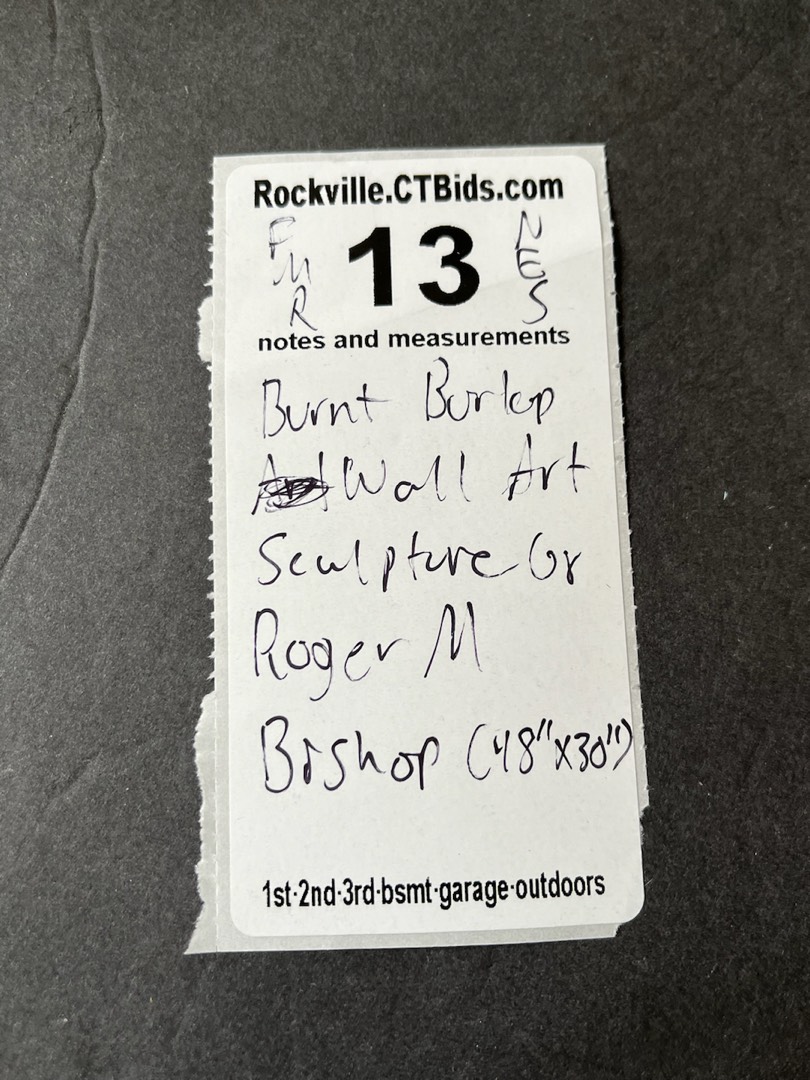 Rockville.CTBids.com
FMR 13 NES
notes and measurements
Burnt Burlap
Wall Art
Sculpture
Roger M
Bishop (48"x30")
1st·2nd·3rd·bsmt·garage·outdoors